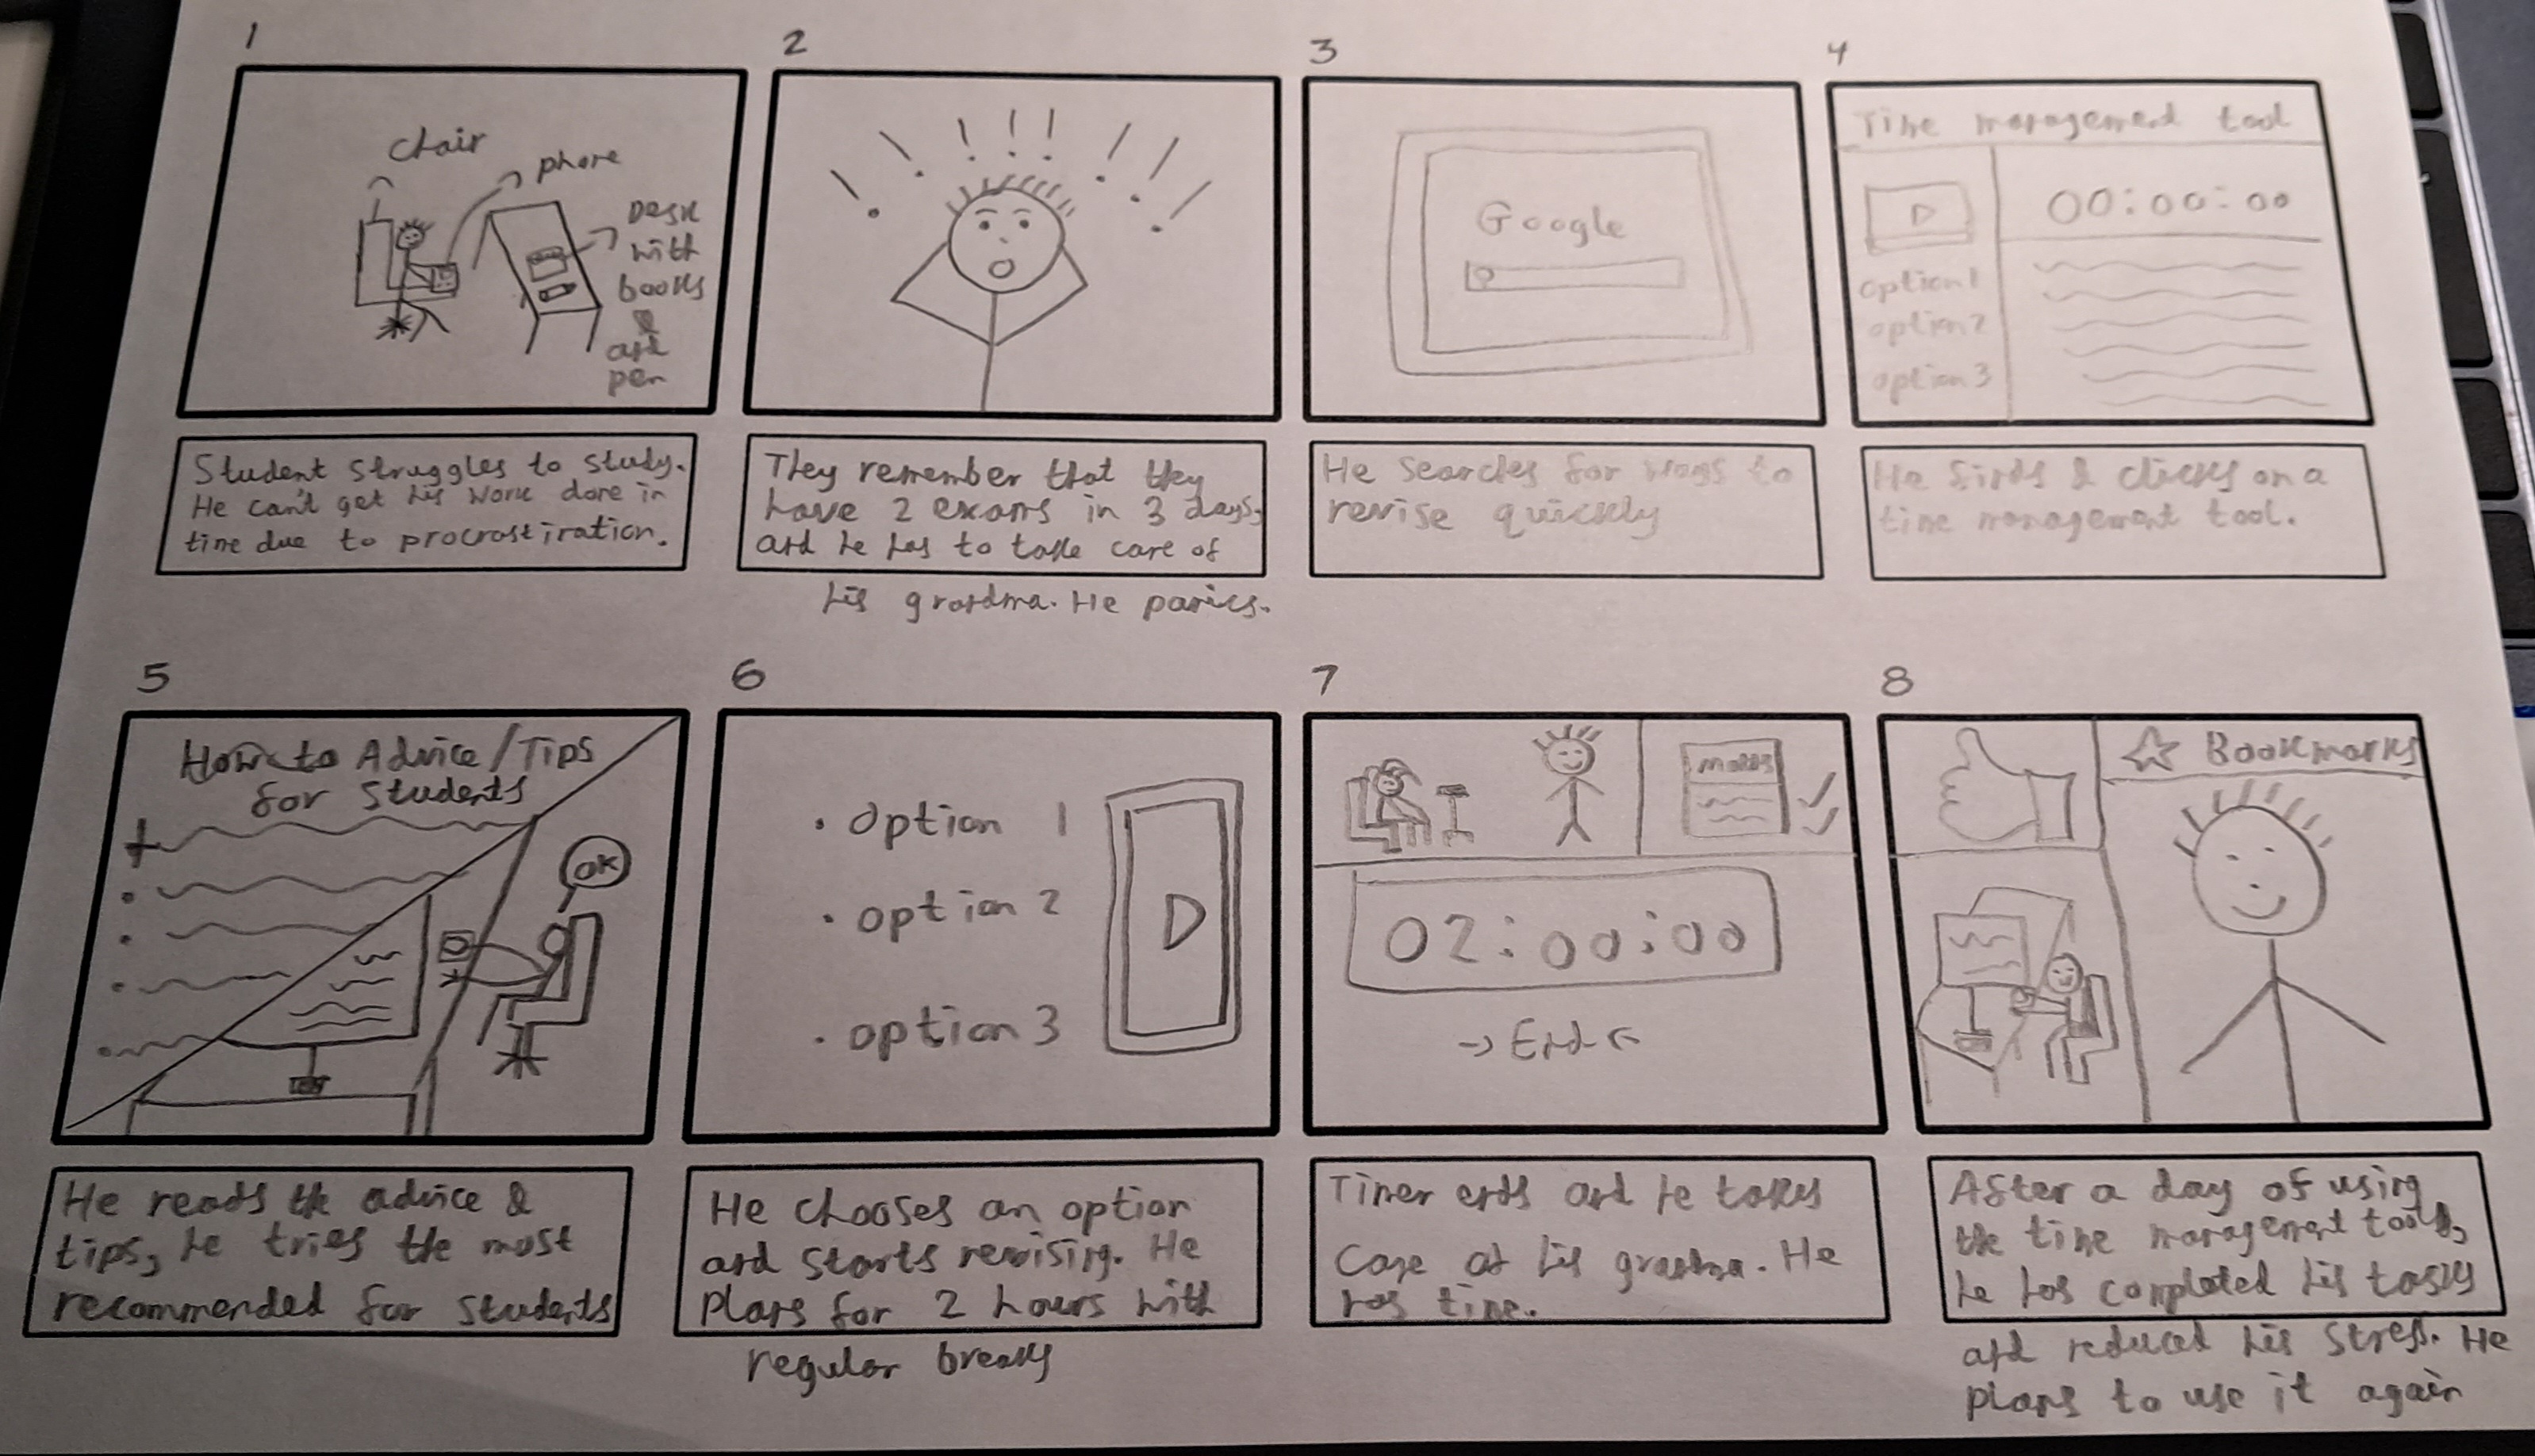 1
chair
phone
Desk
with
books
and
pen
Student struggles to study.
He can't get his work done in
time due to procrastination.
2
! ! ! ! ! ! ! ! !
They remember that they
have 2 exams in 3 days,
and he has to take care of
his grandma. He panics.
3
Google
He searches for ways to
revise quickly
4
Time management tool
00:00:00
option 1
option 2
option 3
He finds & clicks on a
time management tool.
5
How to Advice/Tips
for Students
OK
He reads the advice &
tips, he tries the most
recommended for students
6
• option 1
• option 2
• option 3
He chooses an option
and starts revising. He
plans for 2 hours with
regular breaks
7
02:00:00
→ End ←
Timer ends and he takes
care of his grandma. He
has time.
8
Bookmarks
After a day of using
the time management tool,
he has completed his tasks
and reduced his stress. He
plans to use it again